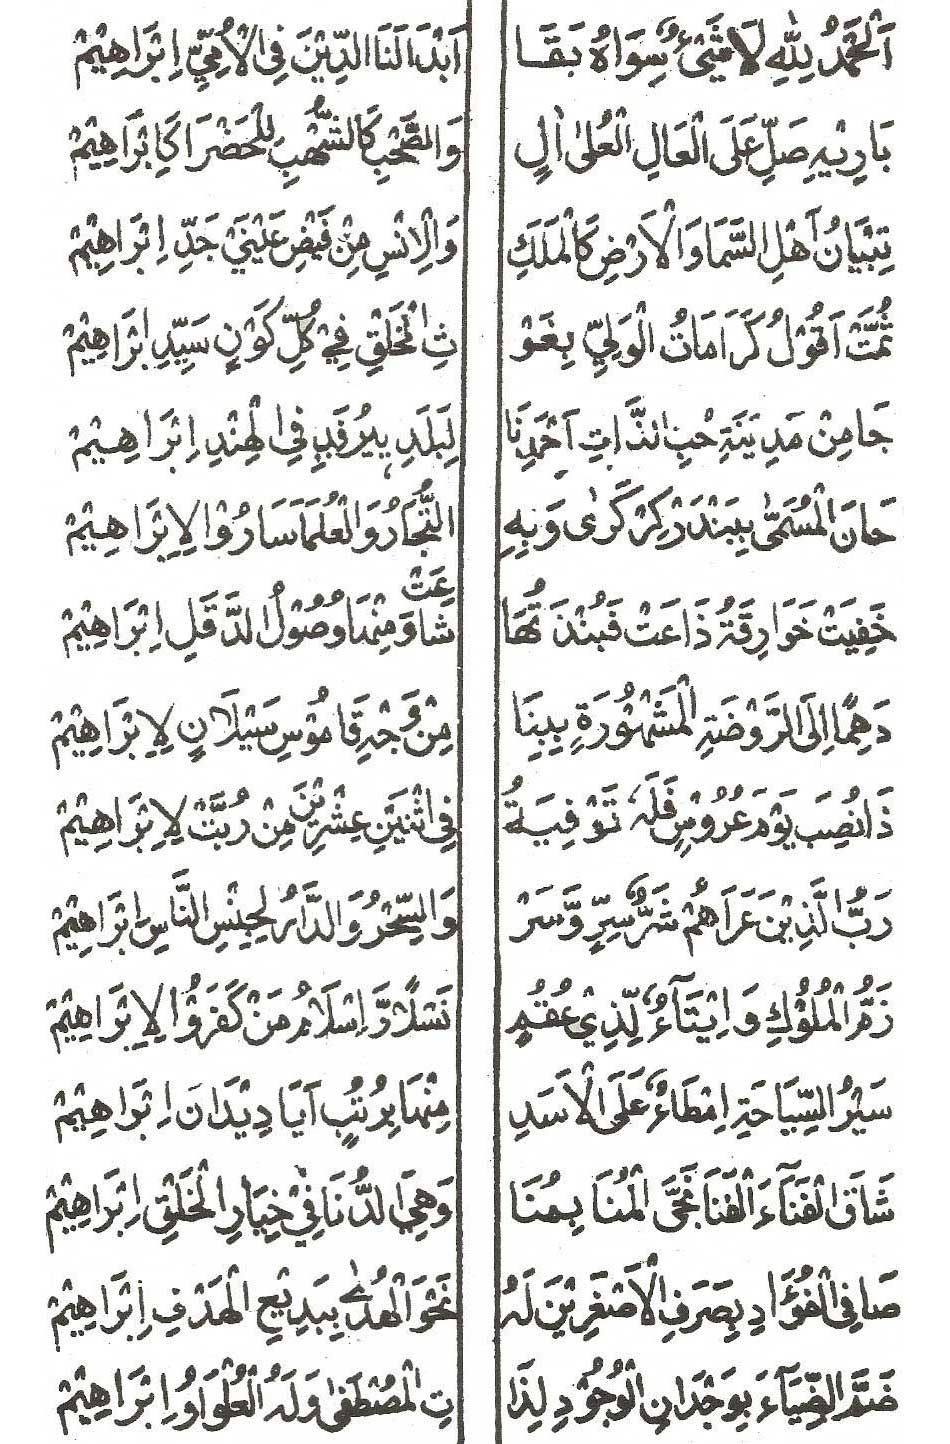 اَلْحَمْدُ لِلّٰهِ لَا شَيْئَ سِوَاهُ بَقَا اَبْدَا لَنَا الدِّيْنَ فِي الْاُمِّيِّ اِبْرَاهِيْمْ
بَارِيْهِ صَلِّ عَلَى الْعَالِ الْعُلٰى اٰلٍ وَالصَّحْبِ كَالشُّهْبِ لِلْخَضْرَا كَاِبْرَاهِيْمْ
تِبْيَانُ اَهْلِ السَّمَا وَالْاَرْضِ كَالْمَلَكِ وَالْاِنْسِ مِنْ فَيْضِ عَيْنَيْ جَدِّ اِبْرَاهِيْمْ
ثُمَّتْ اَقُوْلُ كَرَامَاتُ الْوَلِيِّ بِغَوْ ثِ الْخَلْقِ فِيْ كُلِّ كَوْنٍ سَيِّدِ اِبْرَاهِيْمْ
جَا مِنْ مَدِيْنَةِ حِبِّ الذَّاتِ اَحْمَدِنَا لِبَلَدِ يِيرْفَدِ فِي الْهِنْدِ اِبْرَاهِيْمْ
حَانَ الْمُسَمَّى بِبَنْدَرْ كِرْ كَرٰى وَبِهِ التُّجَّارُ وَالْعُلَمَا سَارُوْا لِاِبْرَاهِيْمْ
خَفِيَتْ خَوَارِقَهُ ذَاعَتْ فَبُنْذَتُهَا شَاعَتْ وَمِنْهَا وُصُوْلُ الدَّقَلِ اِبْرَاهِيْمْ
دَهِمًا اِلَى الرَّوْضَةِ الْمَشْهُوْرَةِ بِيِنَا مِنْ وَجْهِ قَامُوْسِ سَيْلَانٍ لِاِبْرَاهِيْمْ
ذَا نُصِبَ يَوْمَ عُرُوْسٍ فَلَهُ تَوْفِيَةُ فِي اثْنَيْنِ عِشْرِيْنَ مِنْ رُبَّتْ لِاِبْرَاهِيْمْ
رَبُّ الَّذِيْنَ عَرَاهُمْ شَرُّ سِرٍّ وَّسَرْ وَالسِّحْرُ وَالدَّارُ لِجِنْسِ النَّاسِ اِبْرَاهِيْمْ
زَمُّ الْمُلُوْكِ وَاِيْتَآءُ لِّذِيْ عُقُمٍ نَسْلًا وَّاِسْلَامُ مَنْ كَفَرُوْا لِاِبْرَاهِيْمْ
سَيْرُ السِّيَاحَةِ اِمْطَاءُ عَلَى الْاَسَدِ مِنْهَا بِرُتْبٍ اَيَا دِيْدَانَ اِبْرَاهِيْمْ
شَاقَ الْفَنَآءَ الْفَنَا نَجَّى الْمُنَا بِمُنَا وَهِيَ الدُّنَا فِيْ خِيَارِ الْخَلْقِ اِبْرَاهِيْمْ
صَافِي الْفُؤَادِ بِصَرَفِ الْاَصْغَرِيْنَ لَهُ نَحْوَ الْهُدٰى بِبَدِيْعِ الْهَدْفِ اِبْرَاهِيْمْ
ضَمَّ الضِّيَآءَ بِوَجْدَانِ الْوُجُوْدِ لِذَا تِ الْمُصْطَفٰى وَلَهُ الْعُلْوَاوُ اِبْرَاهِيْمْ